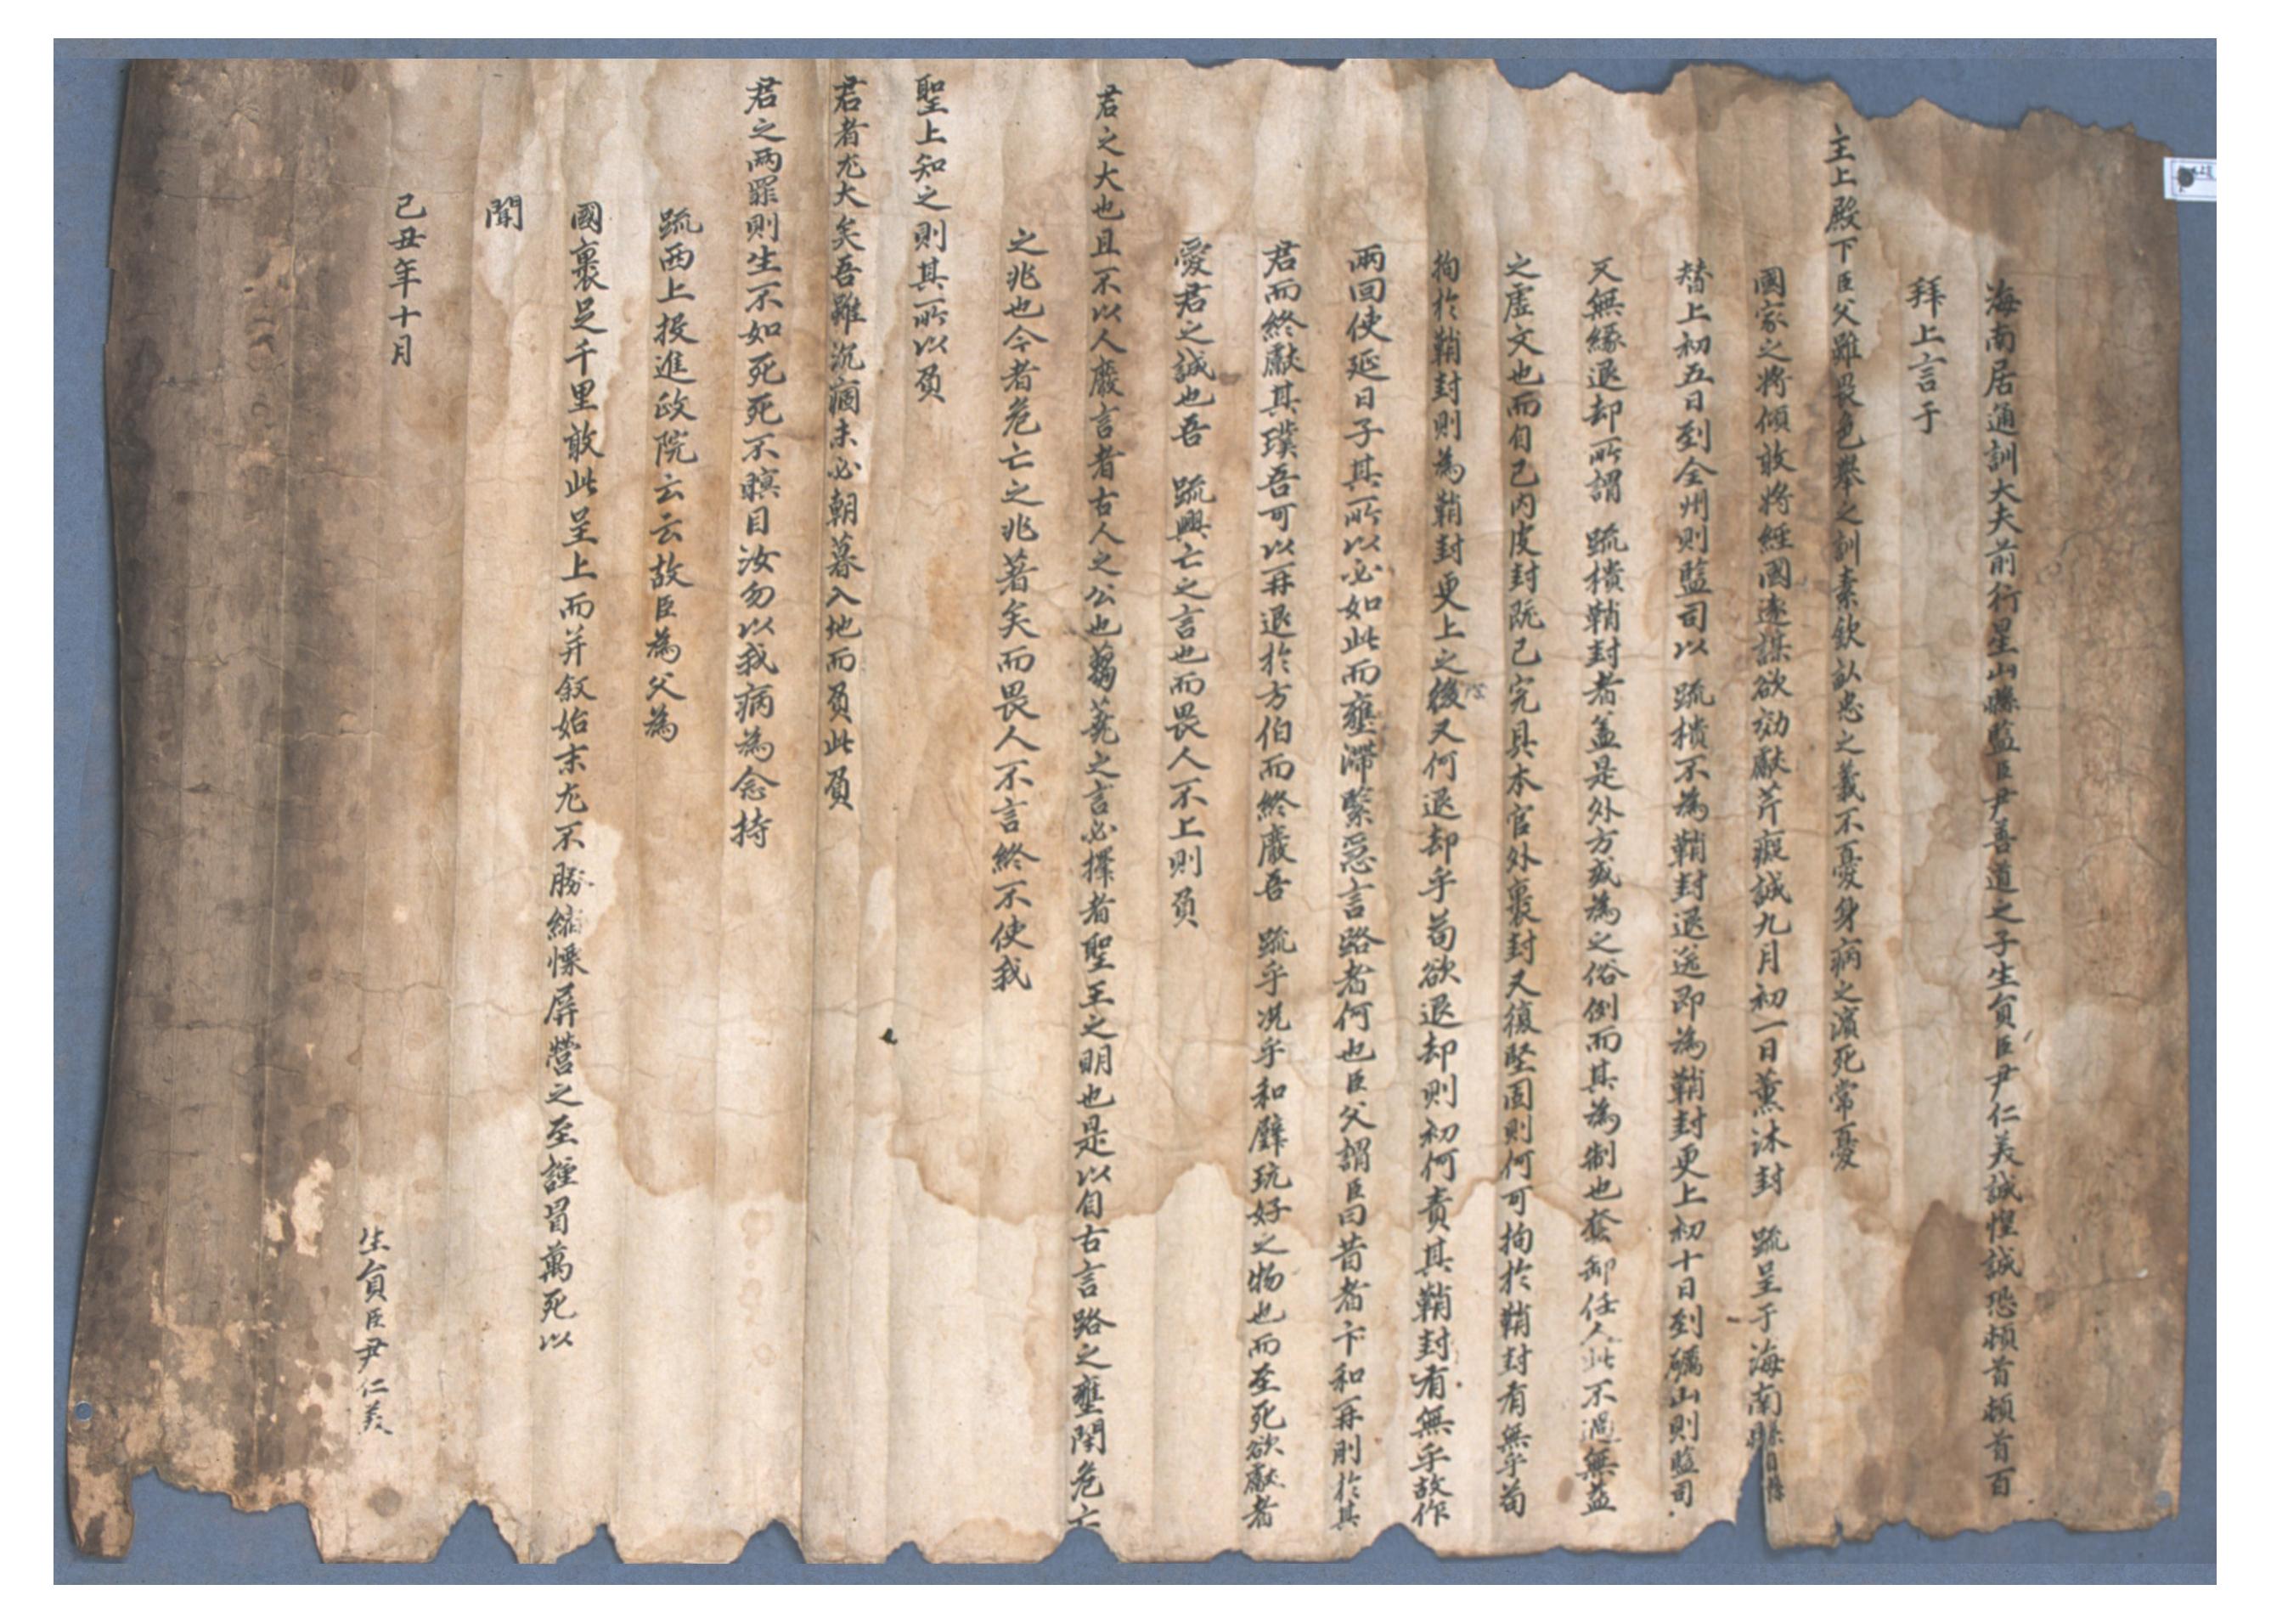 海南居通訓大夫前行星山縣監臣尹善道之子生員臣尹仁美誠惶誠恐頓首頓首百
拜上言于
主上殿下臣父雖畏色擧之訓素欽畎忠之義不憂身病之濱死常憂
國家之將傾敢將經國遠謀欲効獻芹癡誠九月初一日薰沐封 疏呈于海南縣
替上初五日到全州則監司以 疏樻不爲鞘封退送卽爲鞘封更上初十日到礪山則監司
又無緣退却所謂 疏樻鞘封者盖是外方或爲之俗例而其爲制也套卸任人此不過無益
之虛文也而自已內皮封旣已完具本官外裹封又復堅固則何可拘於鞘封有無乎苟
拘於鞘封則爲鞘封更上之後又何退却乎苟欲退却則初何責其鞘封有無乎故作
兩回使延日子其所以必如此而壅滯緊惡言路者何也臣父謂臣曰昔者卞和再刖於其
君而終獻其璞吾可以再退於方伯而終廢吾 疏乎况乎和璧玩好之物也而至死欲獻者
愛君之誠也吾 疏興亡之言也而畏人不上則負
君之大也且不以人廢言者古人之公也蒭蕘之言必擇者聖王之明也是以自古言路之壅閉危亡
之兆也今者危亡之兆著矣而畏人不言終不使我
聖上知之則其所以負
君者尤大矣吾雖沉痼未必朝暮入地而負此負
君之兩罪則生不如死死不瞑目汝勿以我病爲念持
疏西上投進政院云云故臣爲父爲
國裹足千里敢此呈上而并叙始末尤不勝縮慄屛營之至謹冒萬死以
聞
己丑年十月
生員臣尹仁美